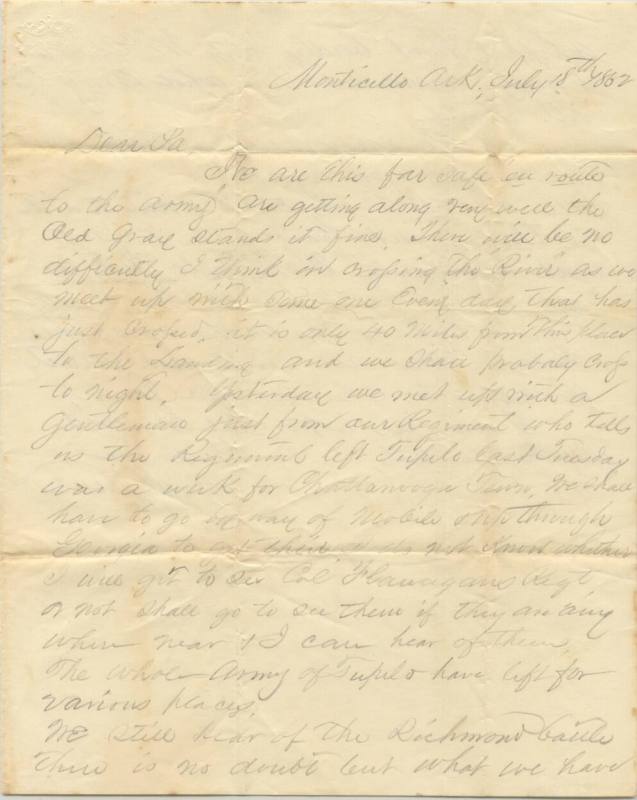 Monticello Ark, July 18th 1862
Dear Sa
We are this far safe en route
to the army are getting along very well the
Old Gray stands it fine. There will be no
difficulty I think in crossing the River as we
meet up with some one Every day that has
just Crossed. it is only 40 Miles from this place
to the Landing and we shall probaly Cross
to night. Yesterday we met up with a
Gentleman just from our Regiment who tells
us the Regiment left Tupelo last Tuesday
was a week for Chattanooga Tenn, We shall
have to go by way of Mobile & up through
Georgia to get their I do not Know whether
I will get to see Col Flanagans Regt
or not shall go to see them if they are any
where near & I can hear of them
The whole Army of Tupelo have left for
various places,
We still hear of the Richmond battle
there is no doubt but what we have